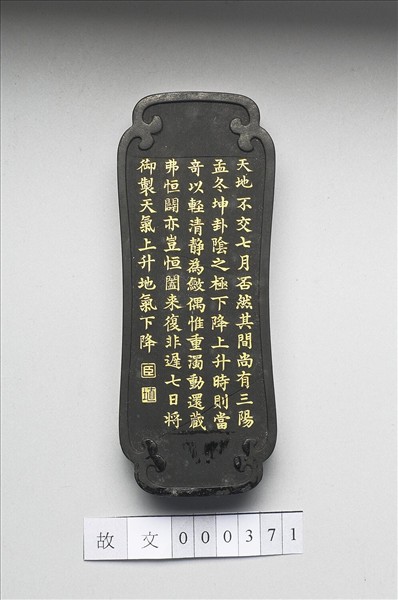 天地不交七月否然其間尚有三陽
孟冬坤卦陰之極下降上升時則當
奇以輕清靜為斂偶惟重濁動還藏
弗恒闢亦豈恒闔来復非遲七日將
御製天氣上升地氣下降
臣
故文000371